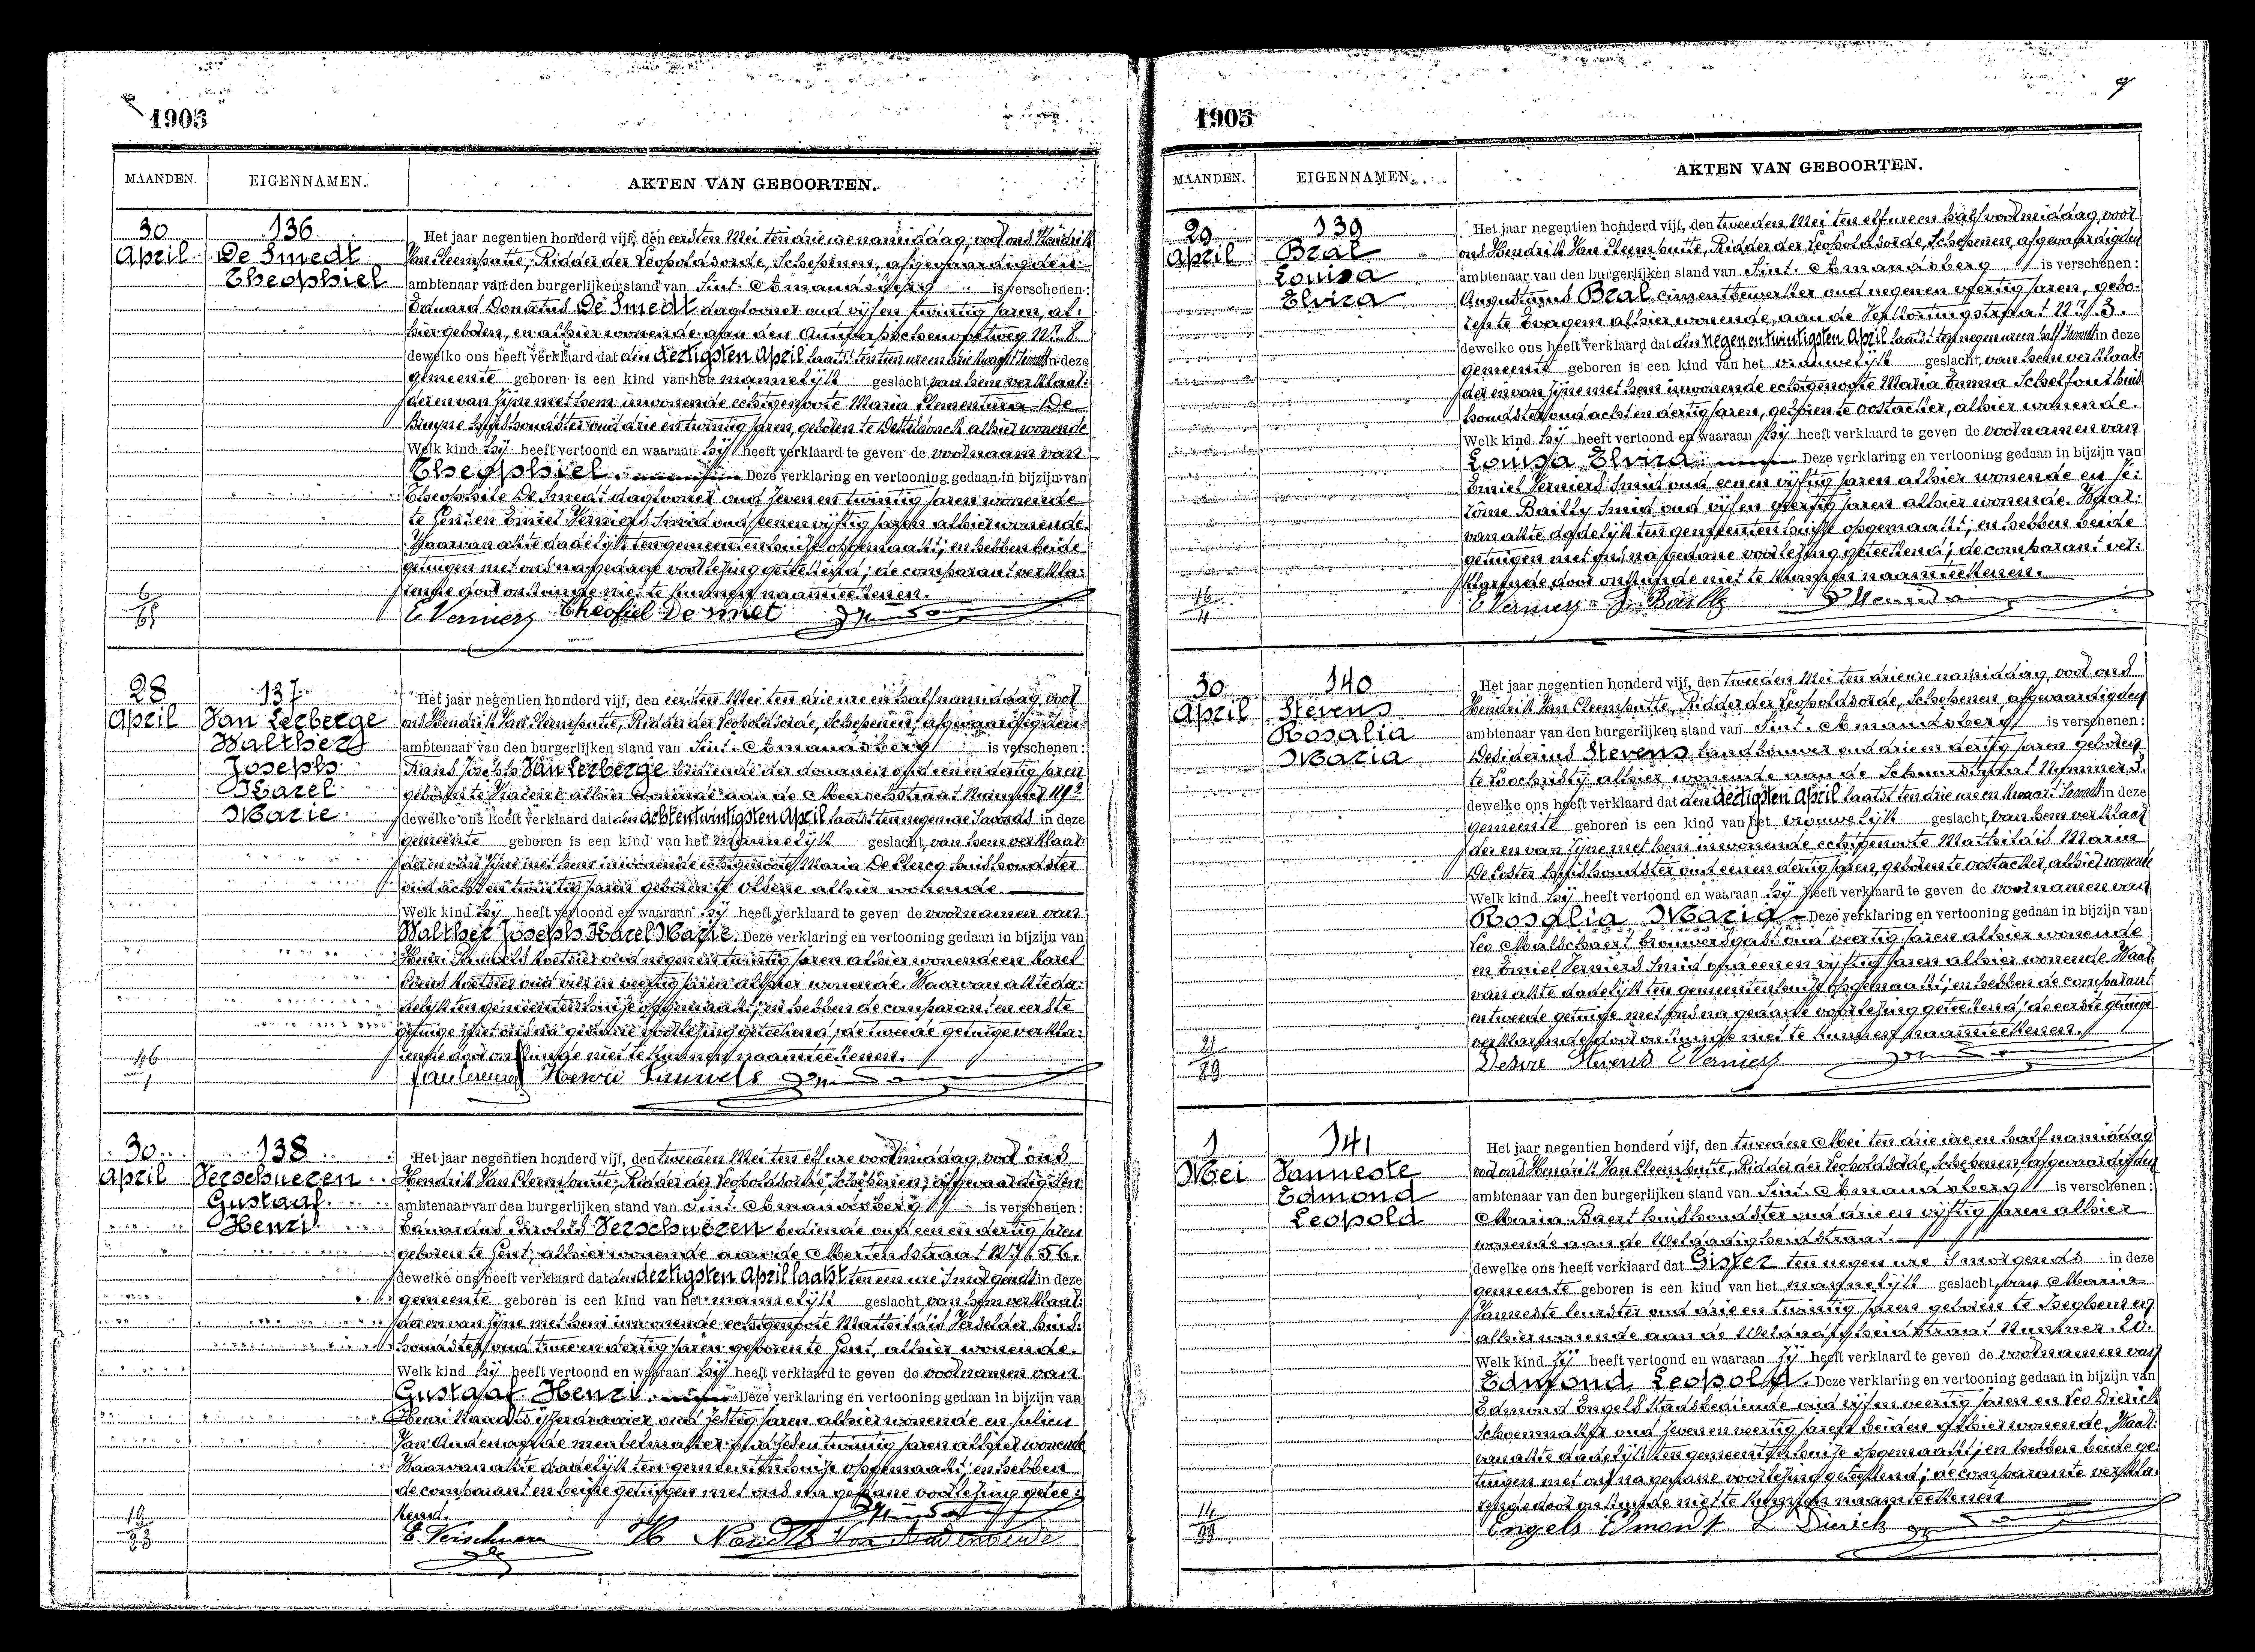 1905
MAANDEN. EIGENNAMEN. AKTEN VAN GEBOORTEN.
30 136
April De Smedt
Theophiel
Het jaar negentien honderd vijf, den eersten Mei ten drie ure namiddag, voor ons Hendrik
Van Cleemputte, Ridder der Leopoldsorde, Schepenen, afgevaardigden
ambtenaar van den burgerlijken stand van Sint-Amandsberg is verschenen:
Eduard Donatus De Smedt daglooner oud vijf en twintig jaren, al-
hier geboren, en alhier wonende aan den Antwerpschensteenweg Nr. 8
dewelke ons heeft verklaard dat den dertigsten April laatst ten tien ure en drie kwart 's avonds in deze
gemeente geboren is een kind van het mannelijk geslacht van hem verklaar-
der en van zijne met hem inwonende echtgenoote Maria Clementina De
Bruyne huishoudster oud drie en twintig jaren, geboren te Destelbergen alhier wonende
Welk kind hij heeft vertoond en waaraan hij heeft verklaard te geven de voornaam van
Theophiel. Deze verklaring en vertooning gedaan in bijzijn van
Theophile De Smedt daglooner oud zeven en twintig jaren wonende
te Gent en Emiel Verniers Smid oud een en vijftig jaren alhier wonende.
Waarvan akte dadelijk ten gemeentenhuize opgemaakt; en hebben beide
getuigen met ons na gedane voorlezing geteekend; de comparant verkla-
rende door onkunde niet te kunnen naamteekenen.
E Verniers Theofiel De Smet
28 137
April Van Lerberge
Walther
Joseph
Karel
Marie
Het jaar negentien honderd vijf, den eersten Mei ten drie ure en half namiddag, voor
ons Hendrik Van Cleemputte, Ridder der Leopoldsorde, Schepenen, afgevaardigden
ambtenaar van den burgerlijken stand van Sint-Amandsberg is verschenen:
Frans Joseph Van Lerberge bediende der douanen oud een en dertig jaren
geboren te alhier wonende aan de Meerschstraat Nummer 192
dewelke ons heeft verklaard dat den acht en twintigsten April laatst ten negen ure 's avonds in deze
gemeente geboren is een kind van het mannelijk geslacht, van hem verklaar-
der en van zijne met hem inwonende echtgenoote Maria De Clercq huishoudster
oud acht en twintig jaren geboren te Olsene alhier wonende.
Welk kind hij heeft vertoond en waaraan hij heeft verklaard te geven de voornamen van
Walther Joseph Karel Marie. Deze verklaring en vertooning gedaan in bijzijn van
Henri oud negen en twintig jaren alhier wonende en Karel
oud vier en veertig jaren alhier wonende. Waarvan akte da-
delijk ten gemeentenhuize opgemaakt; en hebben de comparant en eerste
getuige met ons na gedane voorlezing geteekend; de tweede getuige verkla-
rende door onkunde niet te kunnen naamteekenen.
Henri
30 138
April Verschueren
Gustaaf
Henri
Het jaar negentien honderd vijf, den tweeden Mei ten elf ure voormiddag, voor ons
Hendrik Van Cleemputte, Ridder der Leopoldsorde, Schepenen, afgevaardigden
ambtenaar van den burgerlijken stand van Sint-Amandsberg is verschenen:
Eduardus Carolus Verschueren bediende oud een en dertig jaren
geboren te Gent, alhier wonende aan de Mertensstraat Nr 56.
dewelke ons heeft verklaard dat den dertigsten April laatst ten een ure 's morgends in deze
gemeente geboren is een kind van het mannelijk geslacht van hem verklaar-
der en van zijne met hem inwonende echtgenoote Mathildis Verselder huis-
houdster oud twee en dertig jaren geboren te Gent, alhier wonende.
Welk kind hij heeft vertoond en waaraan hij heeft verklaard te geven de voornamen van
Gustaaf Henri. Deze verklaring en vertooning gedaan in bijzijn van
Henri Nandts ijzerdraaier oud zestig jaren alhier wonende en Julien
Van Audenaerde meubelmaker oud zes en twintig jaren alhier wonende
Waarvan akte dadelijk ten gemeentenhuize opgemaakt; en hebben
de comparant en beide getuigen met ons na gedane voorlezing getee-
kend.
1905
MAANDEN. EIGENNAMEN. AKTEN VAN GEBOORTEN.
29 139
April Bral
Louisa
Elvira
Het jaar negentien honderd vijf, den tweeden Mei ten elf ure en half voormiddag, voor
ons Hendrik Van Cleemputte, Ridder der Leopoldsorde, Schepenen, afgevaardigden
ambtenaar van den burgerlijken stand van Sint-Amandsberg is verschenen:
Augustinus Bral cimentbewerker oud negen en veertig jaren, gebo-
ren te Evergem alhier wonende aan de Nr 3.
dewelke ons heeft verklaard dat den negen en twintigsten April laatst ten negen ure en half 's avonds in deze
gemeente geboren is een kind van het vrouwelijk geslacht, van hem verklaar-
der en van zijne met hem inwonende echtgenoote Maria Emma Schelfout huis-
houdster oud acht en dertig jaren, geboren te Oostacker, alhier wonende.
Welk kind hij heeft vertoond en waaraan hij heeft verklaard te geven de voornamen van
Louisa Elvira. Deze verklaring en vertooning gedaan in bijzijn van
Emiel Verniers Smid oud een en vijftig jaren alhier wonende en Je-
rôme Bailly Smid oud vijf en veertig jaren alhier wonende. Waar-
van akte dadelijk ten gemeentenhuize opgemaakt; en hebben beide
getuigen met ons na gedane voorlezing geteekend; de comparant ver-
klarende door onkunde niet te kunnen naamteekenen.
E Verniers J. Bailly
30 140
April Stevens
Rosalia
Maria
Het jaar negentien honderd vijf, den tweeden Mei ten drie ure namiddag, voor ons
Hendrik Van Cleemputte, Ridder der Leopoldsorde, Schepenen, afgevaardigden
ambtenaar van den burgerlijken stand van Sint-Amandsberg is verschenen:
Desiderius Stevens landbouwer oud drie en dertig jaren geboren
te Loochristy alhier wonende aan de Nummer 3.
dewelke ons heeft verklaard dat den dertigsten April laatst ten drie ure en kwart 's avonds in deze
gemeente geboren is een kind van het vrouwelijk geslacht, van hem verklaar-
der en van zijne met hem inwonende echtgenoote Mathildis Maria
De Coster huishoudster oud een en dertig jaren, geboren te Oostacker, alhier wonende
Welk kind hij heeft vertoond en waaraan hij heeft verklaard te geven de voornamen van
Rosalia Maria. Deze verklaring en vertooning gedaan in bijzijn van
Leo Malschaert brouwersgast oud veertig jaren alhier wonende
en Emiel Verniers Smid oud een en vijftig jaren alhier wonende. Waar-
van akte dadelijk ten gemeentenhuize opgemaakt; en hebben de comparant
en tweede getuige met ons na gedane voorlezing geteekend, de eerste getuige
verklarende door onkunde niet te kunnen naamteekenen.
Desire Stevens E Verniers
1 141
Mei Vanneste
Edmond
Leopold
Het jaar negentien honderd vijf, den tweeden Mei ten drie ure en half namiddag
voor ons Hendrik Van Cleemputte, Ridder der Leopoldsorde, Schepenen, afgevaardigden
ambtenaar van den burgerlijken stand van Sint-Amandsberg is verschenen:
Maria Baert huishoudster oud drie en vijftig jaren alhier
wonende aan de Weldadigheidstraat.
dewelke ons heeft verklaard dat Gister ten negen ure 's morgends in deze
gemeente geboren is een kind van het mannelijk geslacht, van Maria
Vanneste leurster oud drie en twintig jaren geboren te Iseghem en
alhier wonende aan de Weldadigheidstraat Nummer 20.
Welk kind zij heeft vertoond en waaraan zij heeft verklaard te geven de voornamen van
Edmond Leopold. Deze verklaring en vertooning gedaan in bijzijn van
Edmond Engels Stadsbediende oud vijf en veertig jaren en Leo Dierick
Schoenmaker oud zeven en veertig jaren beiden alhier wonende. Waar-
van akte dadelijk ten gemeentenhuize opgemaakt; en hebben beide ge-
tuigen met ons na gedane voorlezing geteekend; de comparante verkla-
rende door onkunde niet te kunnen naamteekenen
Engels Edmont L Dierick